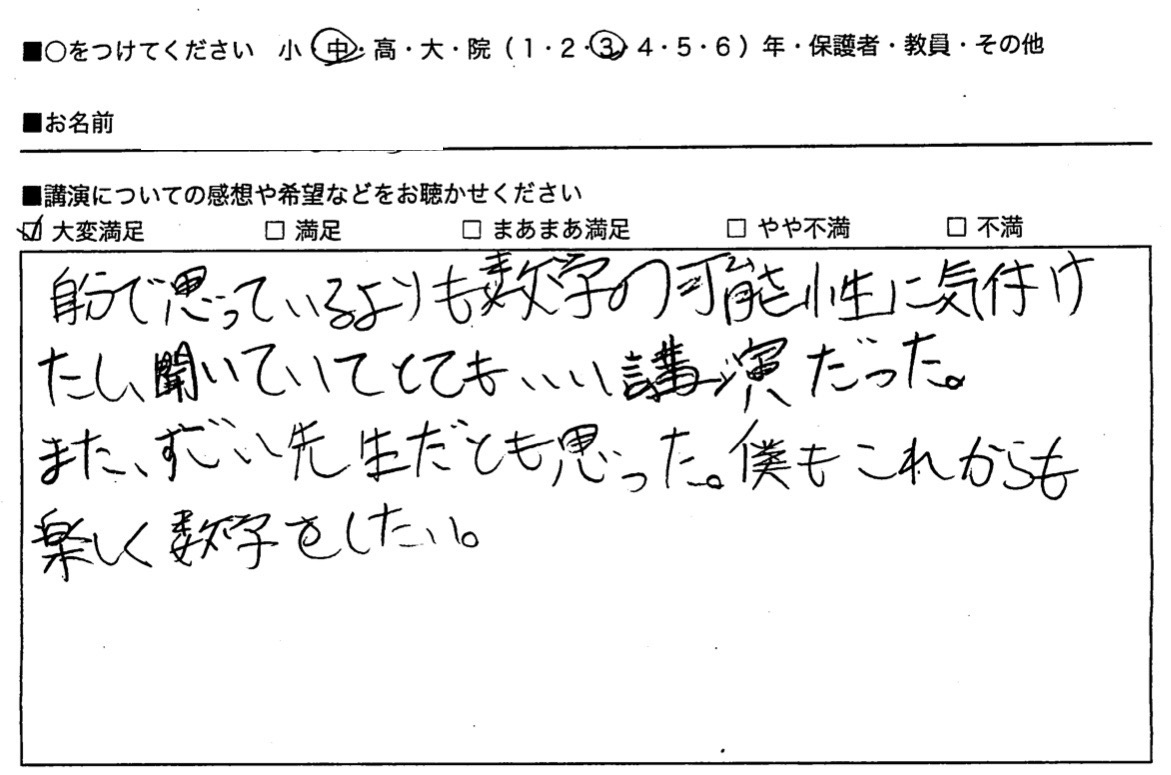 ■○をつけてください 小・中・高・大・院（1・2・3・4・5・6）年・保護者・教員・その他
■お名前
■講演についての感想や希望などをお聴かせください
☑ 大変満足 □ 満足 □ まあまあ満足 □ やや不満 □ 不満
自分で思っているよりも数学の可能性に気付け
たし、聞いていてとてもいい講演だった。
また、すごい先生だとも思った。僕もこれからも
楽しく数学をしたい。